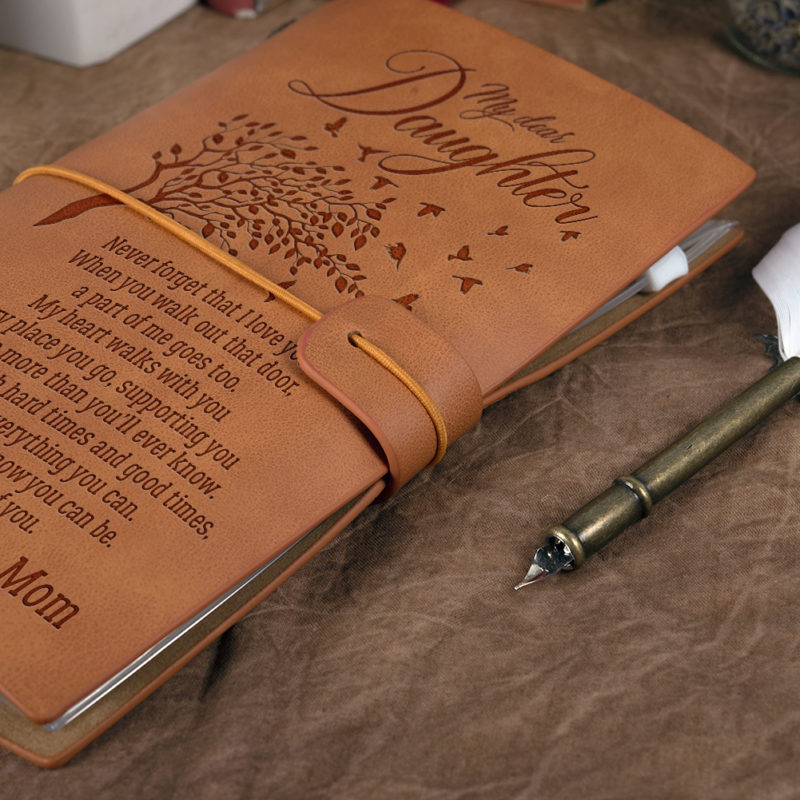 My dear
Daughter
Never forget that I love
When you walk out that door,
a part of me goes too.
My heart walks with you
place you go, supporting you
more than you'll ever know.
hard times and good times,
everything you can.
you can be.
of you.
Mom